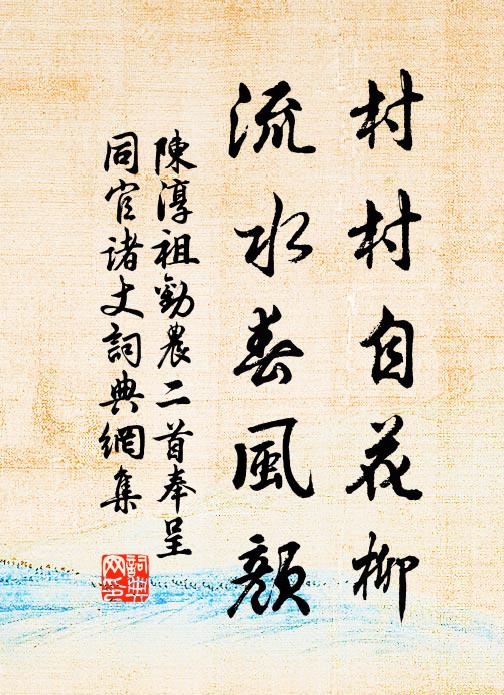 村村自花柳
流水春風顏
陳淳祖勸農二首奉呈
同官諸丈詞典網集
詞典